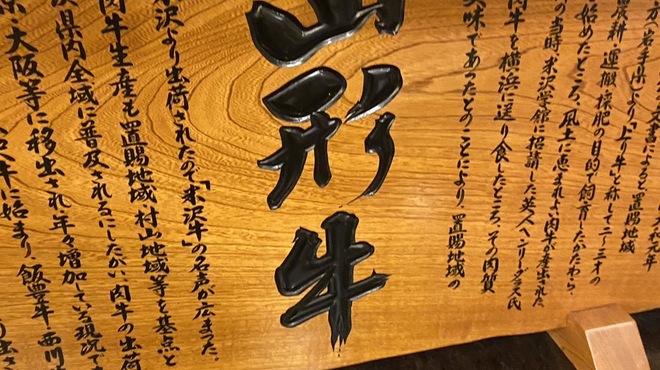 方、岩手県より「上り牛」と称して二〜三才の
農耕・運搬・採肥の目的で飼育したかたわら、
始めたところ、風土に恵まれよい肉牛が産出された
の当時、米沢学館に招請した英人ヘンリーダラス氏
肉牛を横浜に送り食したところ、その肉質
美味であったとのことにより、置賜地域の
山形牛
米沢より出荷されたので「米沢牛」の名声が広まった。
肉牛生産も置賜地域、村山地域等を基点と
県内全域に普及されるにしたがい肉牛の出荷
・大阪等に移出され年々増加している現況で
牛に始まり、飯豊牛・西川